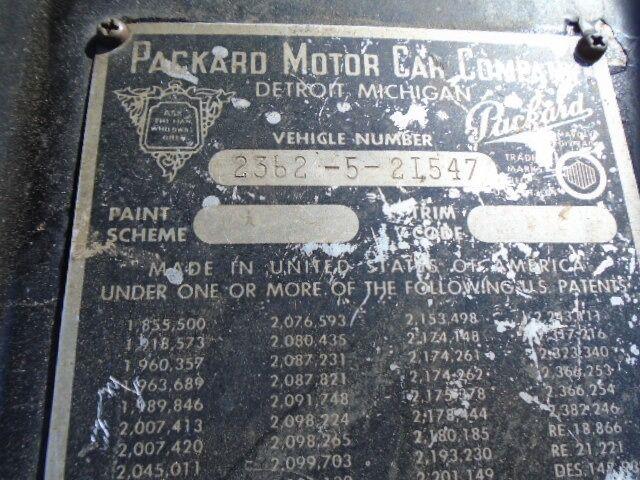 PACKARD MOTOR CAR COMPANY
DETROIT, MICHIGAN
ASK
THE MAN
WHO OWNS
ONE
Packard
VEHICLE NUMBER
TRADE
MARK
2362-5-21547
PAINT
SCHEME
TRIM
CODE
MADE IN UNITED STATES OF AMERICA
UNDER ONE OR MORE OF THE FOLLOWING U.S. PATENTS
1,855,500 2,076,593 2,153,498
1,918,573 2,080,435 2,174,148
1,960,357 2,087,231 2,174,261 2,323,340
1,963,689 2,087,821 2,174,262 2,366,253
1,989,846 2,091,748 2,175,378 2,366,254
2,007,413 2,098,224 2,178,444 2,382,246
2,007,420 2,098,265 2,180,185 RE. 18,866
2,045,011 2,099,703 2,193,230 RE. 21,221
2,201,149 DES.